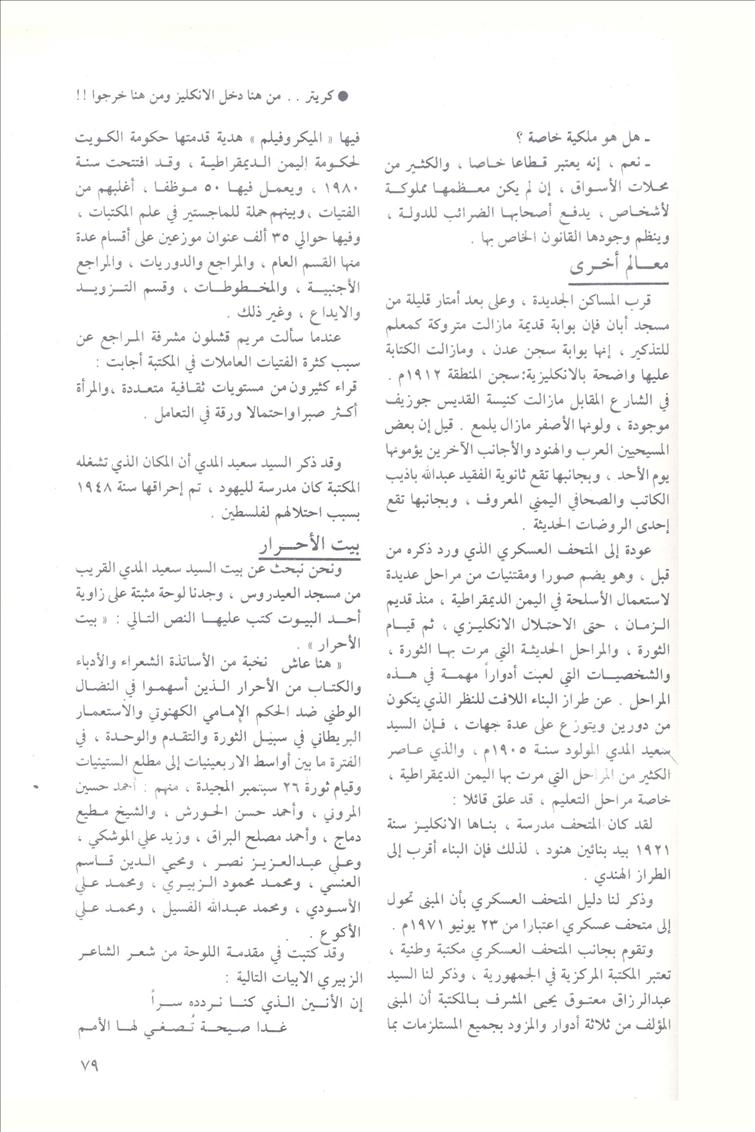 ● كريتر . . من هنا دخل الانكليز ومن هنا خرجوا !!
ـ هل هو ملكية خاصة ؟
ـ نعم ، إنه يعتبر قطاعا خاصا ، والكثير من
محلات الأسواق ، إن لم يكن معظمها مملوكة
لأشخاص ، يدفع أصحابها الضرائب للدولة ،
وينظم وجودها القانون الخاص بها .
معالم أخرى
قرب المساكن الجديدة ، وعلى بعد أمتار قليلة من
مسجد أبان فإن بوابة قديمة مازالت متروكة كمعلم
للتذكير ، إنها بوابة سجن عدن ، ومازالت الكتابة
عليها واضحة بالانكليزية؛ سجن المنطقة ١٩١٢م .
في الشارع المقابل مازالت كنيسة القديس جوزيف
موجودة ، ولونها الأصفر مازال يلمع . قيل إن بعض
المسيحيين العرب والهنود والأجانب الآخرين يؤمونها
يوم الأحد ، وبجانبها تقع ثانوية الفقيد عبدالله باذيب
الكاتب والصحافي اليمني المعروف ، وبجانبها تقع
إحدى الروضات الحديثة .
عودة إلى المتحف العسكري الذي ورد ذكره من
قبل ، وهو يضم صورا ومقتنيات من مراحل عديدة
لاستعمال الأسلحة في اليمن الديمقراطية ، منذ قديم
الزمان ، حتى الاحتلال الانكليزي ، ثم قيام
الثورة ، والمراحل الحديثة التي مرت بها الثورة ،
والشخصيات التي لعبت أدواراً مهمة في هذه
المراحل . عن طراز البناء اللافت للنظر الذي يتكون
من دورين ويتوزع على عدة جهات ، فإن السيد
سعيد المدي المولود سنة ١٩٠٥م ، والذي عاصر
الكثير من المراحل التي مرت بها اليمن الديمقراطية ،
خاصة مراحل التعليم ، قد علق قائلا :
لقد كان المتحف مدرسة ، بناها الانكليز سنة
١٩٢١ بيد بنائين هنود ، لذلك فإن البناء أقرب إلى
الطراز الهندي .
وذكر لنا دليل المتحف العسكري بأن المبنى تحول
إلى متحف عسكري اعتبارا من ٢٣ يونيو ١٩٧١م .
وتقوم بجانب المتحف العسكري مكتبة وطنية ،
تعتبر المكتبة المركزية في الجمهورية ، وذكر لنا السيد
عبدالرزاق معتوق يحيى المشرف بالمكتبة أن المبنى
المؤلف من ثلاثة أدوار والمزود بجميع المستلزمات بما
فيها « الميكروفيلم » هدية قدمتها حكومة الكويت
لحكومة اليمن الديمقراطية ، وقد افتتحت سنة
١٩٨٠ ، ويعمل فيها ٥٠ موظفا ، أغلبهم من
الفتيات ، وبينهم حملة للماجستير في علم المكتبات ،
وفيها حوالي ٣٥ ألف عنوان موزعين على أقسام عدة
منها القسم العام ، والمراجع والدوريات ، والمراجع
الأجنبية ، والمخطوطات ، وقسم التزويد
والايداع ، وغير ذلك .
عندما سألت مريم قشلون مشرفة المراجع عن
سبب كثرة الفتيات العاملات في المكتبة أجابت :
قراء كثيرون من مستويات ثقافية متعددة ، والمرأة
أكثر صبرا واحتمالا ورقة في التعامل .
وقد ذكر السيد سعيد المدي أن المكان الذي تشغله
المكتبة كان مدرسة لليهود ، تم إحراقها سنة ١٩٤٨
بسبب احتلالهم لفلسطين .
بيت الأحرار
ونحن نبحث عن بيت السيد سعيد المدي القريب
من مسجد العيدروس ، وجدنا لوحة مثبتة على زاوية
أحد البيوت كتب عليها النص التالي : « بيت
الأحرار » .
« هنا عاش نخبة من الأساتذة الشعراء والأدباء
والكتاب من الأحرار الذين أسهموا في النضال
الوطني ضد الحكم الإمامي الكهنوتي والاستعمار
البريطاني في سبيل الثورة والتقدم والوحدة ، في
الفترة ما بين أواسط الاربعينيات إلى مطلع الستينيات
وقيام ثورة ٢٦ سبتمبر المجيدة ، منهم : أحمد حسين
المروني ، وأحمد حسن الحورش ، والشيخ مطيع
دماج ، وأحمد مصلح البراق ، وزيد علي الموشكي ،
وعلي عبدالعزيز نصر ، ومحيي الدين قاسم
العنسي ، ومحمد محمود الزبيري ، ومحمد علي
الأسودي ، ومحمد عبدالله الفسيل ، ومحمد علي
الأكوع .
وقد كتبت في مقدمة اللوحة من شعر الشاعر
الزبيري الابيات التالية :
إن الأنين الذي كنا نردده سراً
غدا صيحة تُصغي لها الأمم
٧٩